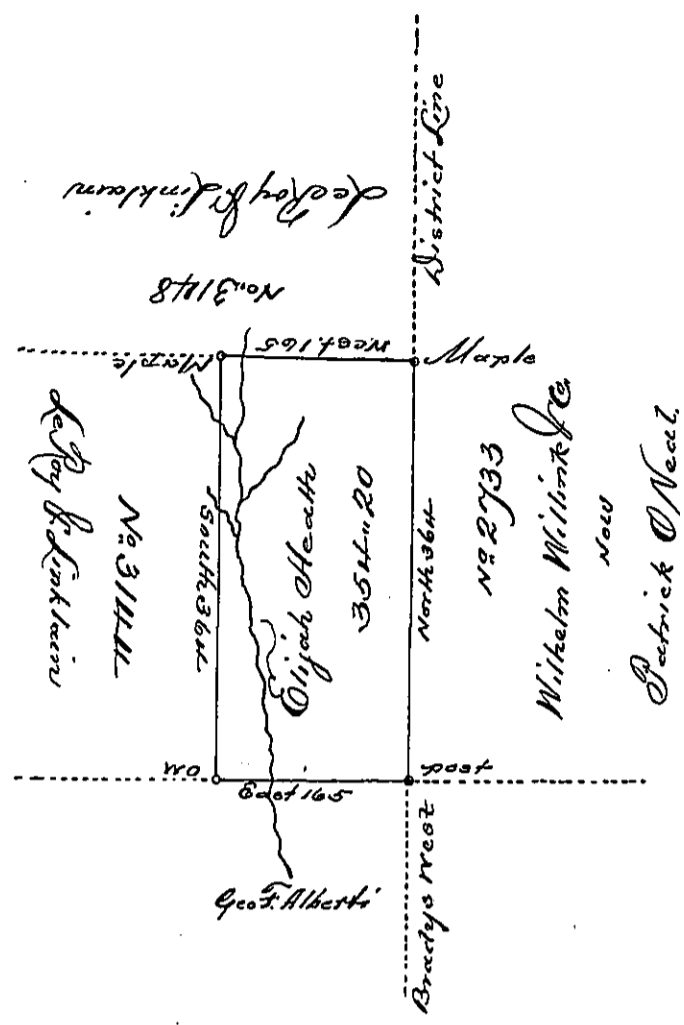 LeRoy & Linklain
No. 3148
District Line
Maple
West 165
Maple
LeRoy & Linklain
No. 3144
South 364
Elijah Heath
354 " 20
North 364
No. 2733
Wilhelm Willink & Co.
Now
Patrick O Neal.
East 165
Post
Geo F. Alberti
Bradys West